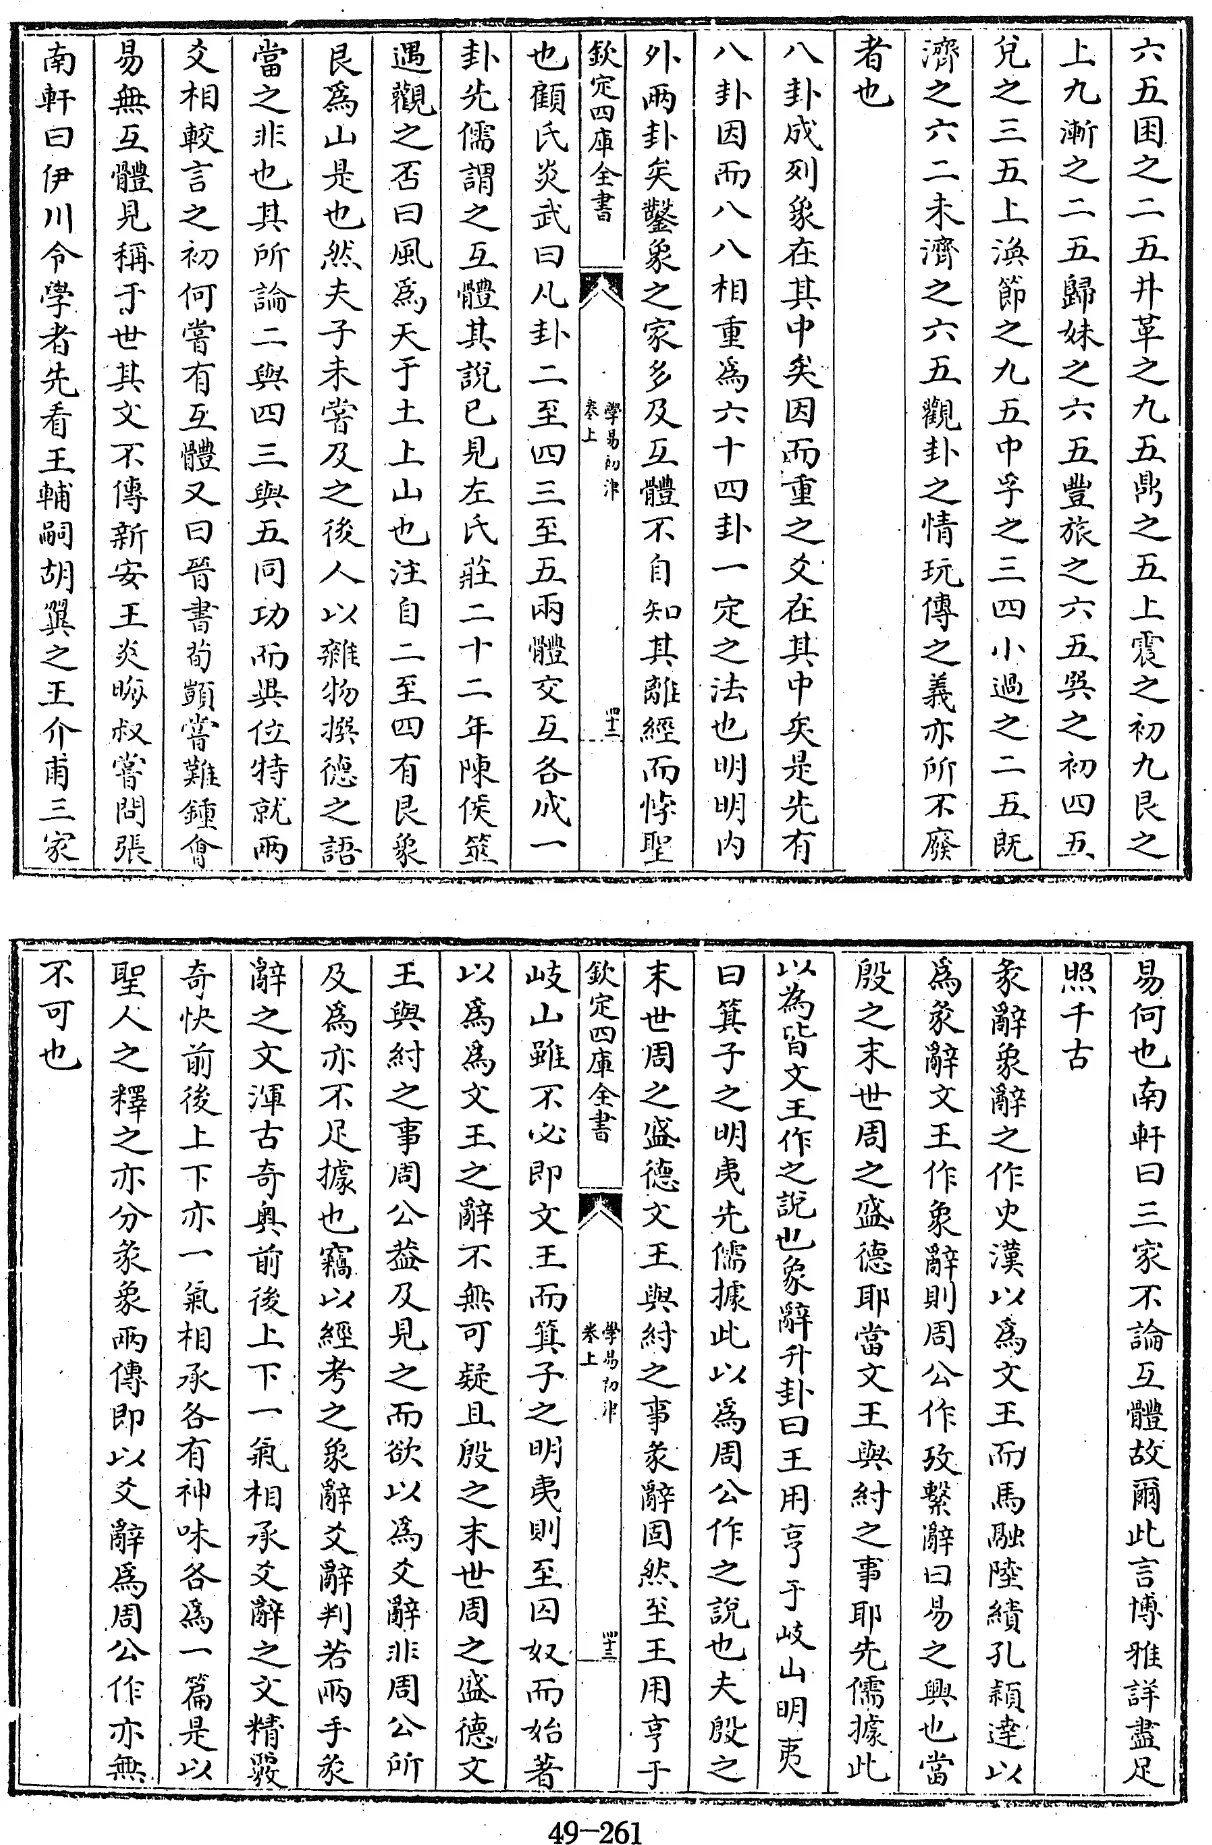 六五困之二五井革之九五鼎之五上震之初九艮之
上九漸之二五歸妹之六五豐旅之六五巽之初四五
兌之三五上渙節之九五中孚之三四小過之二五既
濟之六二未濟之六五觀卦之情玩傳之義亦所不廢
者也
八卦成列象在其中矣因而重之爻在其中矣是先有
八卦因而八八相重為六十四卦一定之法也明明內
外兩卦矣鑿象之家多及互體不自知其離經而悖聖
欽定四庫全書
學易初津
卷上
四十二
也顧氏炎武曰凡卦二至四三至五兩體交互各成一
卦先儒謂之互體其說已見左氏莊二十二年陳侯筮
遇觀之否曰風為天于土上山也注自二至四有艮象
艮為山是也然夫子未嘗及之後人以雜物撰德之語
當之非也其所論二與四三與五同功而異位特就兩
爻相較言之初何嘗有互體又曰晉書荀顗嘗難鍾會
易無互體見稱于世其文不傳新安王炎晦叔嘗問張
南軒曰伊川令學者先看王輔嗣胡翼之王介甫三家
易何也南軒曰三家不論互體故爾此言博雅詳盡足
照千古
彖辭象辭之作史漢以為文王而馬融陸績孔穎達以
為彖辭文王作象辭則周公作攷繫辭曰易之興也當
殷之末世周之盛德耶當文王與紂之事耶先儒據此
以為皆文王作之說也象辭升卦曰王用亨于岐山明夷
曰箕子之明夷先儒據此以為周公作之說也夫殷之
末世周之盛德文王與紂之事彖辭固然至王用亨于
欽定四庫全書
學易初津
卷上
四十三
岐山雖不必即文王而箕子之明夷則至囚奴而始著
以為為文王之辭不無可疑且殷之末世周之盛德文
王與紂之事周公葢及見之而欲以為爻辭非周公所
及為亦不足據也竊以經考之象辭爻辭判若兩手彖
辭之文渾古奇奧前後上下一氣相承爻辭之文精覈
奇快前後上下亦一氣相承各有神味各為一篇是以
聖人之釋之亦分彖象兩傳即以爻辭為周公作亦無
不可也
49-261